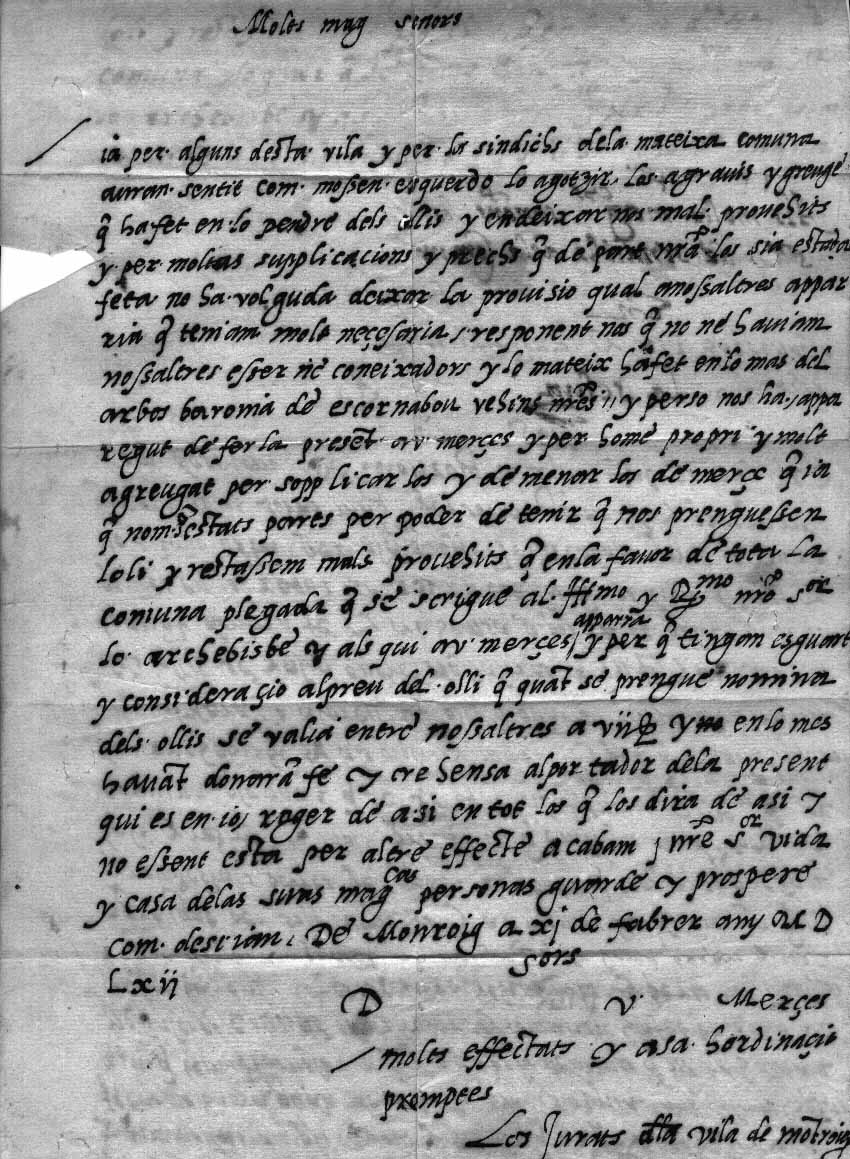 Molts mag senors
ia per alguns desta vila y per los sindichs dela mateixa comuna
auran sentit com mossen esquerdo lo agotzir los agravis y greuge
q̃ ha fet en lo pendre dels ollis y en deixar nos mal provehits
y per moltas supplicacions y prechs q̃ de part nr̃a los sia estada
feta no ha volguda deixar la provisio qual a nossaltres appar
ria q̃ teniam molt neçesaria responent nos q̃ no ne haviam
nossaltres esser ne coneixadors y lo mateix ha fet en lo mas del
arbos baronia de escornabou vehins nr̃es y perso nos ha appa
regut de fer la present a v merçes y per home propri y molt
agreugat per sopplicar los y demenar los de merçe q̃ ia
q̃ nom estats parres per poder de tenir q̃ nos prenguessen
loli y restassem mals provehits q̃ en la favor de tota la
comuna plegada q̃ se scrigue al Illmo y Rmo nr̃o sor
apparra
lo archebisbe y als qui a v merçes y per q̃ tingan esguart
y consideraçio al preu del olli q̃ quãt se prengue nomina
dels ollis se valia entre nossaltres a vij y no en lo mes
havãt donarrã fe y crehensa al portador dela present
qui es en ioã roger de asi en tot los q̃ los dira de asi y
no essent esta per altre effecte acabam nr̃e sor vida
y casa delas suas magcas personas guarde y prospere
com desiiam De Monroig a xj de fabrer any M D
Lxij
sors
D v Merçes
molts effectats y a sa hordinaçio
promptes
Los Jurats dela vila de mõtroig